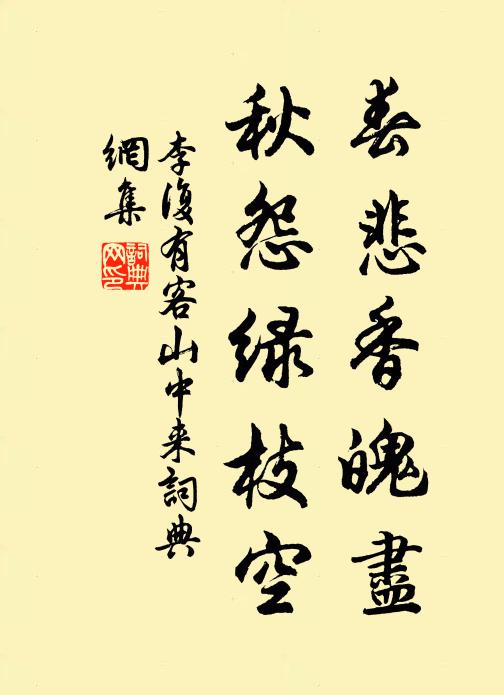 春悲香魄盡
秋怨绿枝空
李復有客山中来詞典
網集
詞典
网印